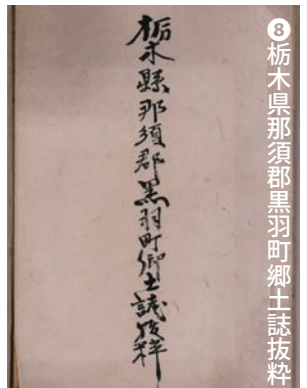 ❽栃木県那須郡黒羽町郷土誌抜粋
栃木縣那須郡黒羽町郷土誌抜粋